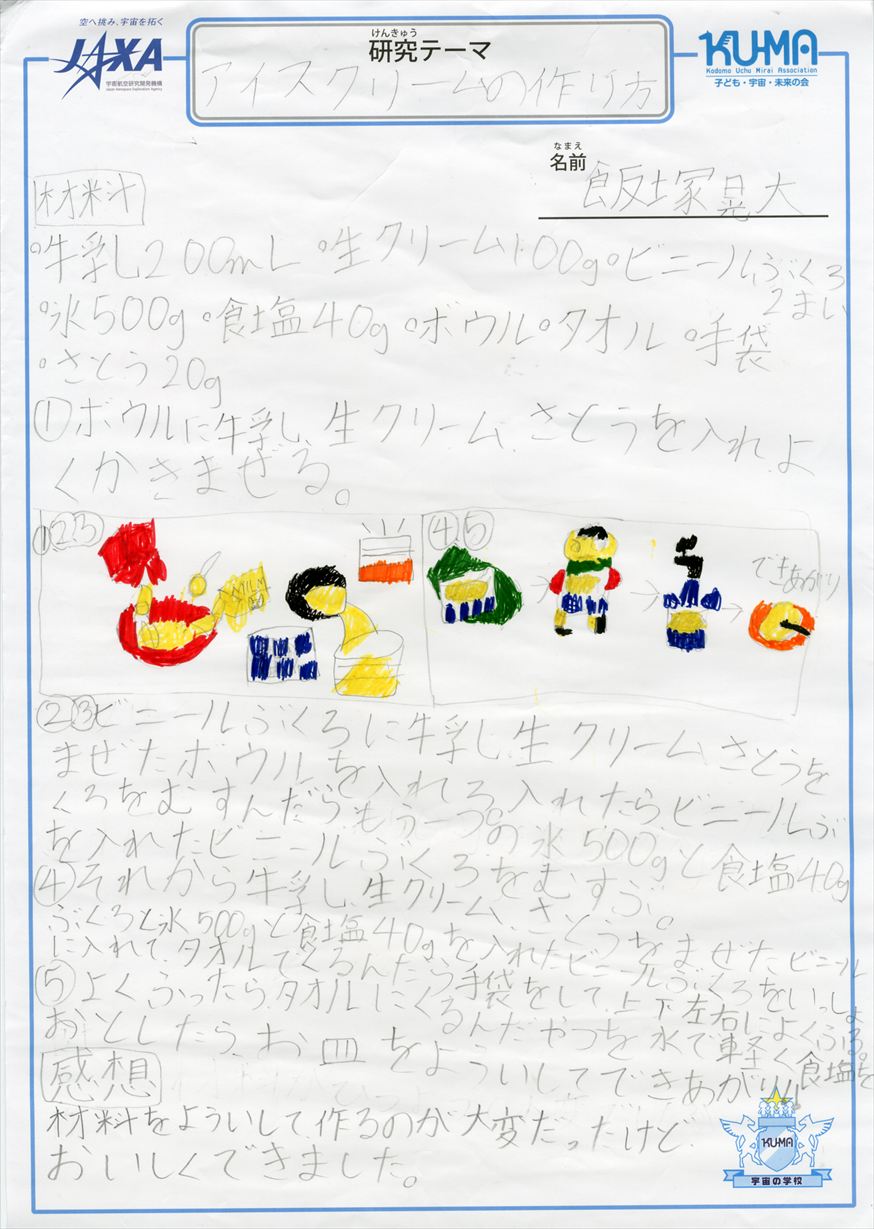 空へ挑み、宇宙を拓く
JAXA
宇宙航空研究開発機構
Japan Aerospace Exploration Agency
けんきゅう
研究テーマ
アイスクリームの作り方
KU-MA
Kodomo Uchu Mirai Association
子ども・宇宙・未来の会
なまえ
名前
飯塚晃大
材料
°牛乳200mL °生クリーム100g °ビニールぶくろ
2まい
°氷500g °食塩40g °ボウル °タオル °手袋
°さとう20g
①ボウルに牛乳、生クリーム、さとうを入れよ
くかきまぜる。
①②③
MILK
④⑤
できあがり
②③ビニールぶくろに牛乳、生クリーム、さとうを
まぜたボウルを入れる。入れたらビニールぶ
くろをむすんだら、もう一つの氷500gと食塩40g
を入れたビニールぶくろをむすぶ。
④それから牛乳、生クリーム、さとうをまぜたビニール
ぶくろと氷500gと食塩40gを入れたビニールぶくろをいっしょ
に入れて、タオルでくるんだら手袋をして、上下左右によくふる。
⑤よくふったら、タオルにくるんだやつを水で軽く食塩を
おとしたら、お皿をよういしてできあがり!!
感想
材料をよういして作るのが大変だったけど、
おいしくできました。
KU-MA
宇宙の学校